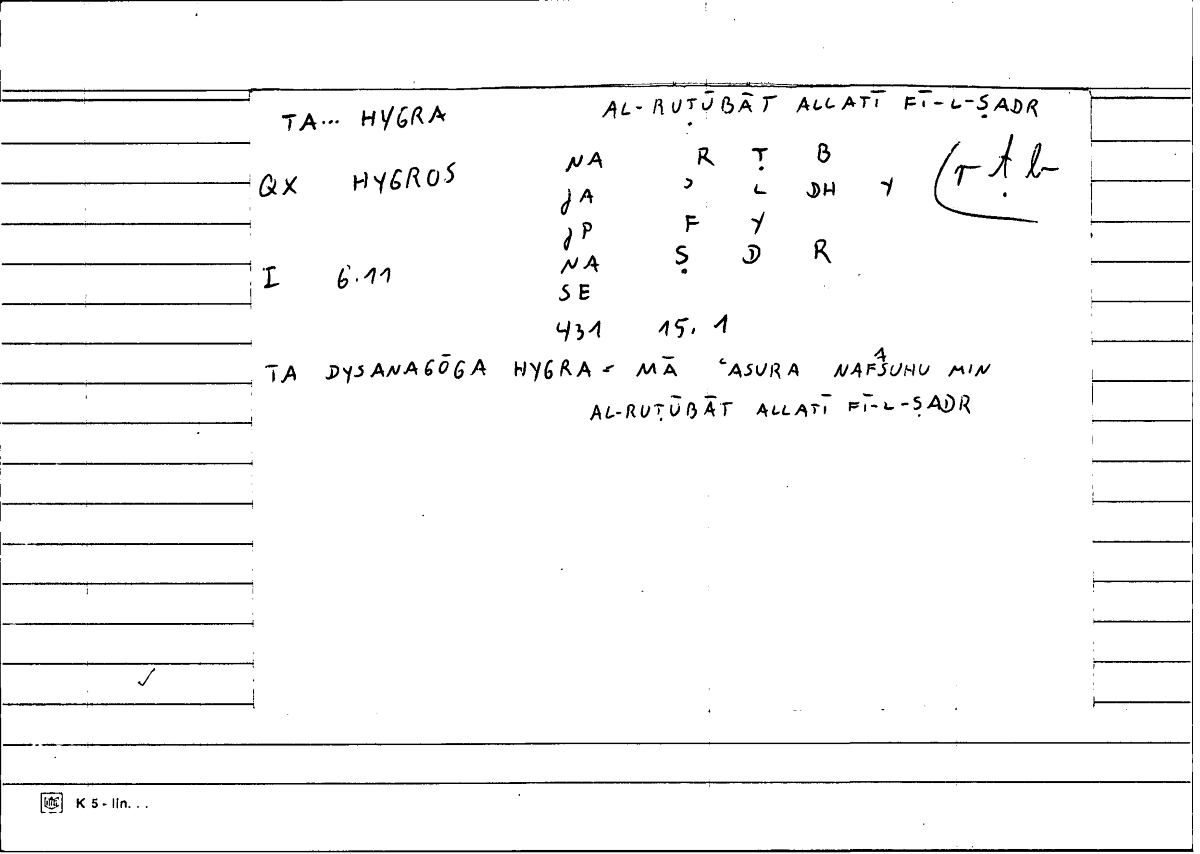 TA... HYGRA AL-RUṬŪBĀT ALLATĪ FĪ-L-ṢADR
QX HYGROS NA R Ṭ B (r ṭ b
JA ʾ L DH Y
JP F Y
I 6.11 NA Ṣ D R
SE
431 15, 1
TA DYSANAGŌGA HYGRA = MĀ ʿASURA NAFṮUHU MIN
AL-RUṬŪBĀT ALLATĪ FĪ-L-ṢADR
✓
K 5 - lin. . .